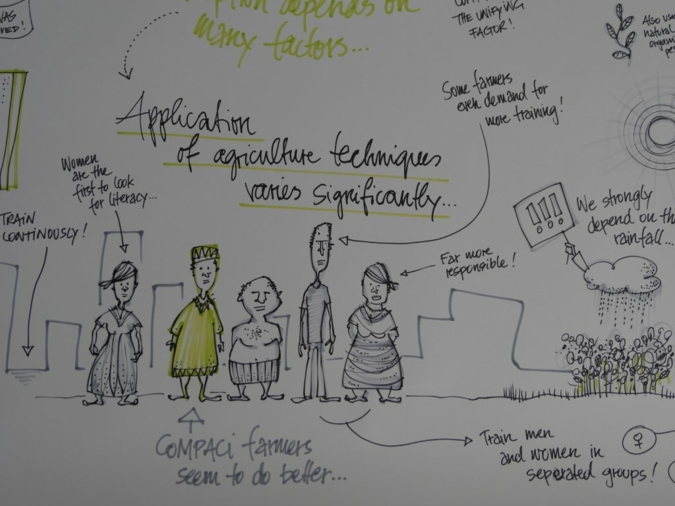 depends on
many factors...
THE UNIFYING
FACTOR!
Also use
natural
organi
pe
Some farmers
even demand for
more training!
Application
of agriculture techniques
varies significantly...
Women
are the
first to look
for literacy...
TRAIN
CONTINOUSLY!
We strongly
depend on th
rainfall...
!!!
Far more
responsible!
COMPACI farmers
seem to do better...
Train men
and women in
seperated groups!
♀